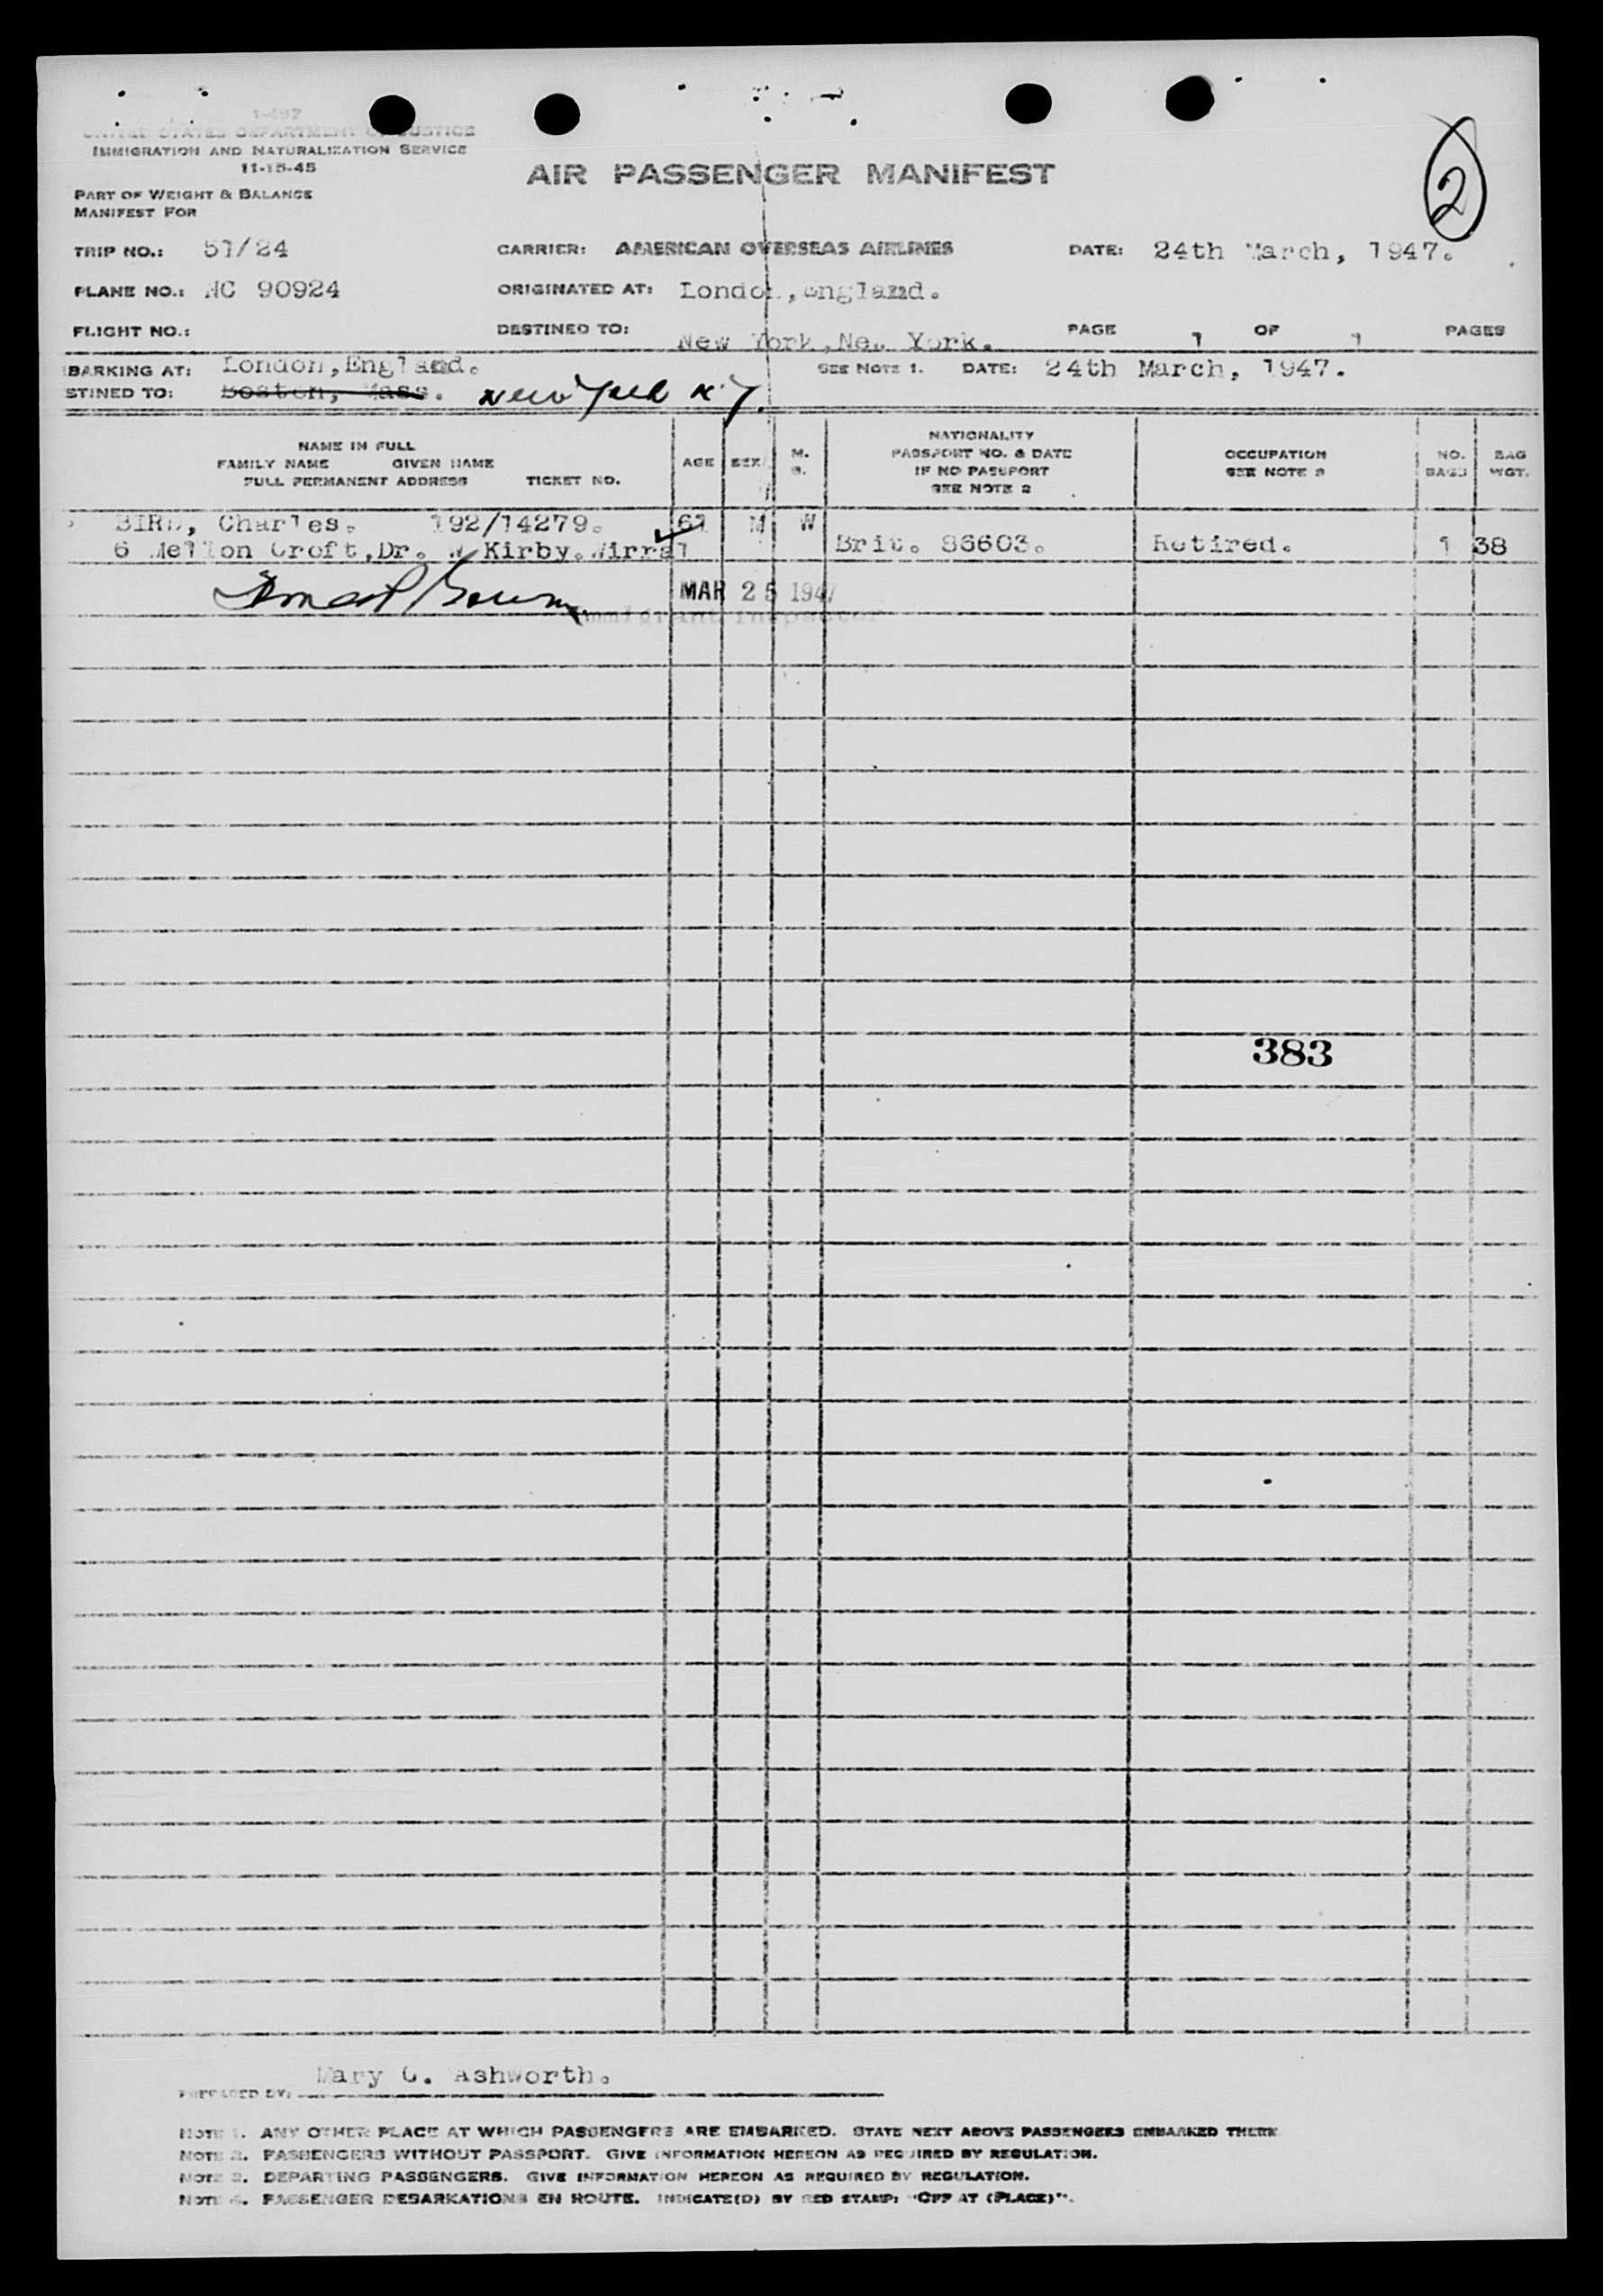 1-492
UNITED STATES DEPARTMENT OF JUSTICE
IMMIGRATION AND NATURALIZATION SERVICE
11-15-45
AIR PASSENGER MANIFEST
2
PART OF WEIGHT & BALANCE
MANIFEST FOR
TRIP NO.: 51/24 CARRIER: AMERICAN OVERSEAS AIRLINES DATE: 24th March, 1947.
PLANE NO.: NC 90924 ORIGINATED AT: London, England.
FLIGHT NO.: DESTINED TO: New York, New York. PAGE 1 OF 1 PAGES
BARKING AT: London, England. SEE NOTE 1. DATE: 24th March, 1947.
STINED TO: Boston, Mass. New York N.Y.
NAME IN FULL
FAMILY NAME GIVEN NAME
FULL PERMANENT ADDRESS TICKET NO.
AGE SEX M. S.
NATIONALITY
PASSPORT NO. & DATE
IF NO PASSPORT
SEE NOTE 2
OCCUPATION
SEE NOTE 3
NO. BAGS
BAG WGT.
BIRD, Charles. 192/14279. 61 M W
6 Mellon Croft, Dr. W Kirby. Wirral Brit. 86603. Retired. 1 38
MAR 25 1947
Immigrant Inspector
383
Mary C. Ashworth.
PREPARED BY:
NOTE 1. ANY OTHER PLACE AT WHICH PASSENGERS ARE EMBARKED. STATE NEXT ABOVE PASSENGERS EMBARKED THERE
NOTE 2. PASSENGERS WITHOUT PASSPORT. GIVE INFORMATION HEREON AS REQUIRED BY REGULATION.
NOTE 3. DEPARTING PASSENGERS. GIVE INFORMATION HEREON AS REQUIRED BY REGULATION.
NOTE 4. PASSENGER DEBARKATIONS EN ROUTE. INDICATE(D) BY RED STAMP: "OFF AT (PLACE)".